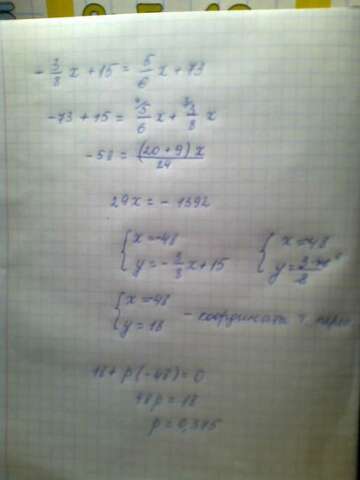 -3/8 x + 15 = 5/6 x + 73
-73 + 15 = 5/6 x + 3/8 x
-58 = (20 + 9) x / 24
29x = -1392
{ x = -48
y = -3/8 x + 15
{ x = -48
{ x = -48
y = 18 - координата т.
18 + p(-48) = 0
48p = 18
p = 0,375